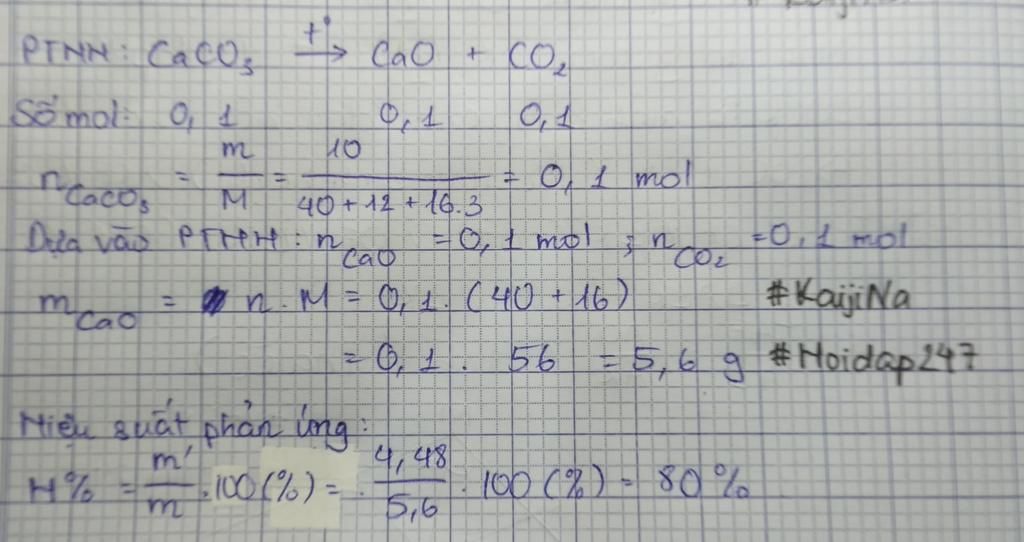 PTHH: CaCO₃ —t°→ CaO + CO₂
Số mol: 0,1 0,1 0,1
n_CaCO₃ = m/M = 10/(40+12+16.3) = 0,1 mol
Dựa vào PTHH: n_CaO = 0,1 mol ; n_CO₂ = 0,1 mol
m_CaO = n . M = 0,1 . (40 + 16) #KaijiNa
= 0,1 . 56 = 5,6 g #Hoidap247
Hiệu suất phản ứng:
H% = m'/m .100(%) = . 4,48/5,6 . 100 (%) = 80%